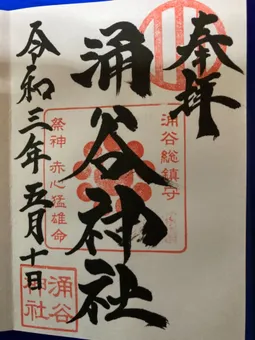 奉拝
涌谷総鎮守
涌谷神社
祭神 赤心猛雄命
令和三年五月十日
涌谷
神社